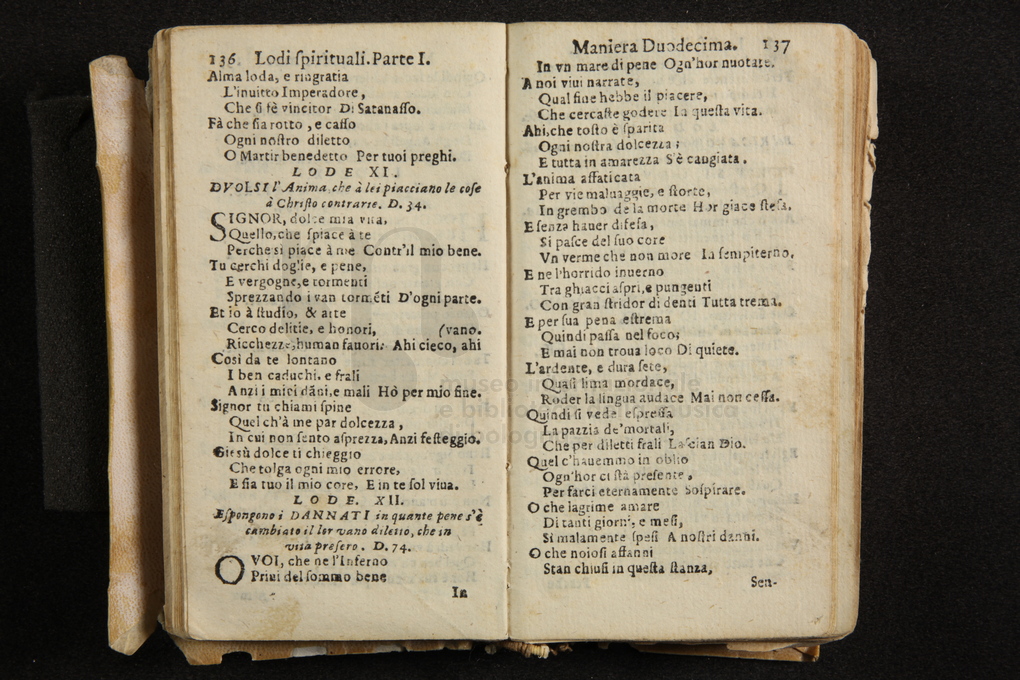 136 Lodi ſpirituali. Parte I.
Alma loda, e ringratia
L'inuitto Imperadore,
Che ſi fè vincitor Di Satanaſſo.
Fà che ſia rotto, e caſſo
Ogni noſtro diletto
O Martir benedetto Per tuoi preghi.
LODE XI.
DVOLSI l'Anima, che à lei piacciano le coſe
à Chriſto contrarie. D. 34.
SIGNOR, dolce mia vita,
Quello, che ſpiace à te
Perche si piace à me Contr'il mio bene.
Tu cerchi doglie, e pene,
E vergogne, e tormenti
Sprezzando i van torméti D'ogni parte.
Et io à ſtudio, & arte
Cerco delitie, e honori, (vano.
Ricchezze, human fauori: Ahi cieco, ahi
Cosi da te lontano
I ben caduchi, e frali
Anzi i miei dãni, e mali Hò per mio fine.
Signor tu chiami ſpine
Quel ch'à me par dolcezza,
In cui non ſento aſprezza, Anzi feſteggio.
Giesù dolce ti chieggio
Che tolga ogni mio errore,
E ſia tuo il mio core, E in te ſol viua.
LODE. XII.
Eſpongono i DANNATI in quante pene s'è
cambiato il lor vano diletto, che in
vita preſero. D. 74.
O VOI, che ne l'Inferno
Priui del ſommo bene
In
Maniera Duodecima. 137
In vn mare di pene Ogn'hor nuotate.
A noi viui narrate,
Qual fine hebbe il piacere,
Che cercaſte godere In queſta vita.
Ahi, che toſto è ſparita
Ogni noſtra dolcezza;
E tutta in amarezza S'è cangiata.
L'anima affaticata
Per vie maluaggie, e ſtorte,
In grembo de la morte Hor giace ſteſa.
E ſenza hauer difeſa,
Si paſce del ſuo core
Vn verme che non more In ſempiterno.
E ne l'horrido inuerno
Tra ghiacci aſpri, e pungenti
Con gran ſtridor di denti Tutta trema.
E per ſua pena eſtrema
Quindi paſſa nel foco;
E mai non troua loco Di quiete.
L'ardente, e dura ſete,
Quaſi lima mordace,
Roder la lingua audace Mai non ceſſa.
Quindi ſi vede eſpreſſa
La pazzia de' mortali,
Che per diletti frali Laſcian Dio.
Quel c'hauemmo in oblio
Ogn'hor ci ſtà preſente,
Per farci eternamente Soſpirare.
O che lagrime amare
Di tanti giorni, e meſi,
Si malamente ſpeſi A noſtri danni.
O che noioſi affanni
Stan chiuſi in queſta ſtanza,
Sen-